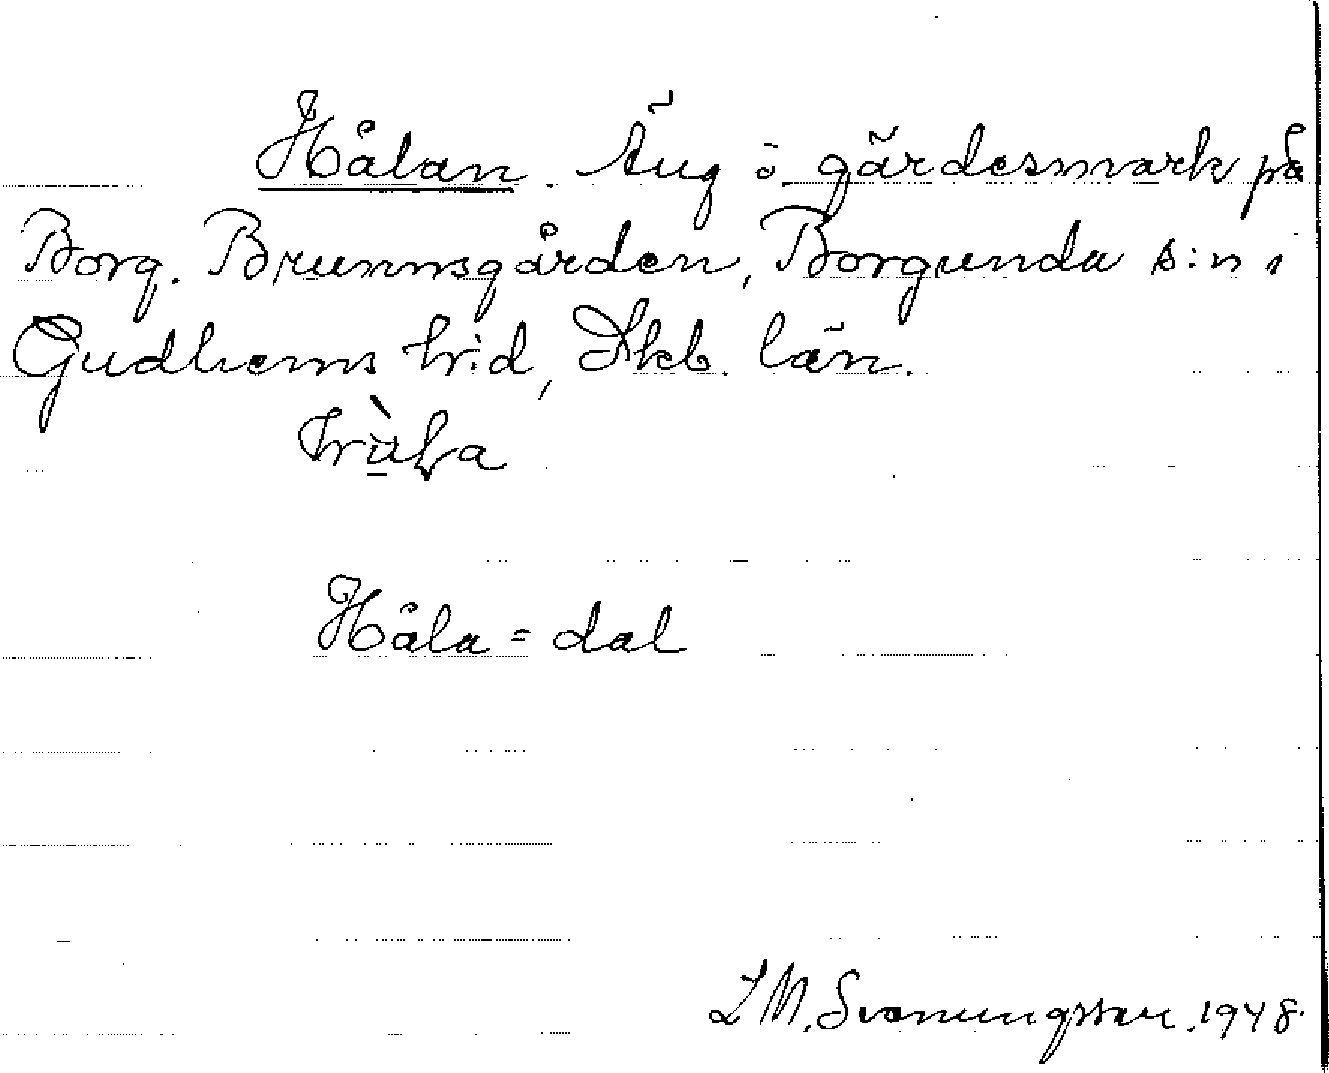 Hålan. Äng o. gärdesmark på
Borg. Brunnsgården, Borgunda s:n i
Gudhems h:d, Skb. län.
Håla = dal
L M. Svanungsson. 1948.